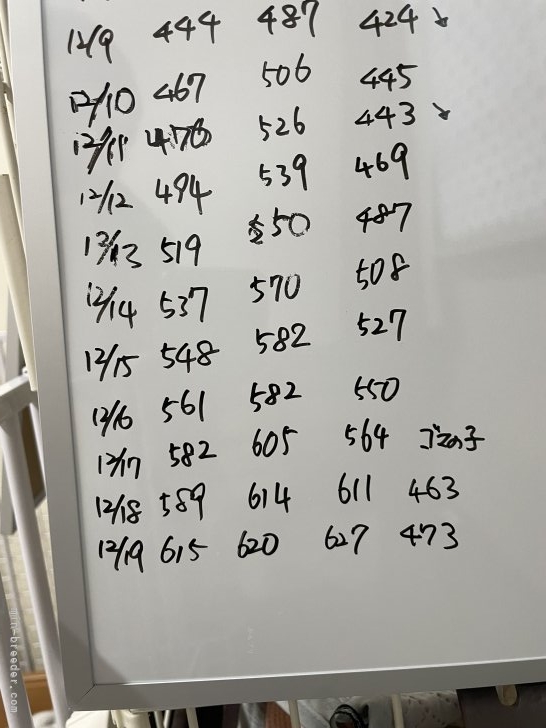 12/9 444 487 424 ↘
12/10 467 506 445
12/11 476 526 443 ↘
12/12 494 539 469
12/13 519 550 487
12/14 537 570 508
12/15 548 582 527
12/16 561 582 550
12/17 582 605 564 ゴマの子
12/18 589 614 611 463
12/19 615 620 627 473
min-breeder.com